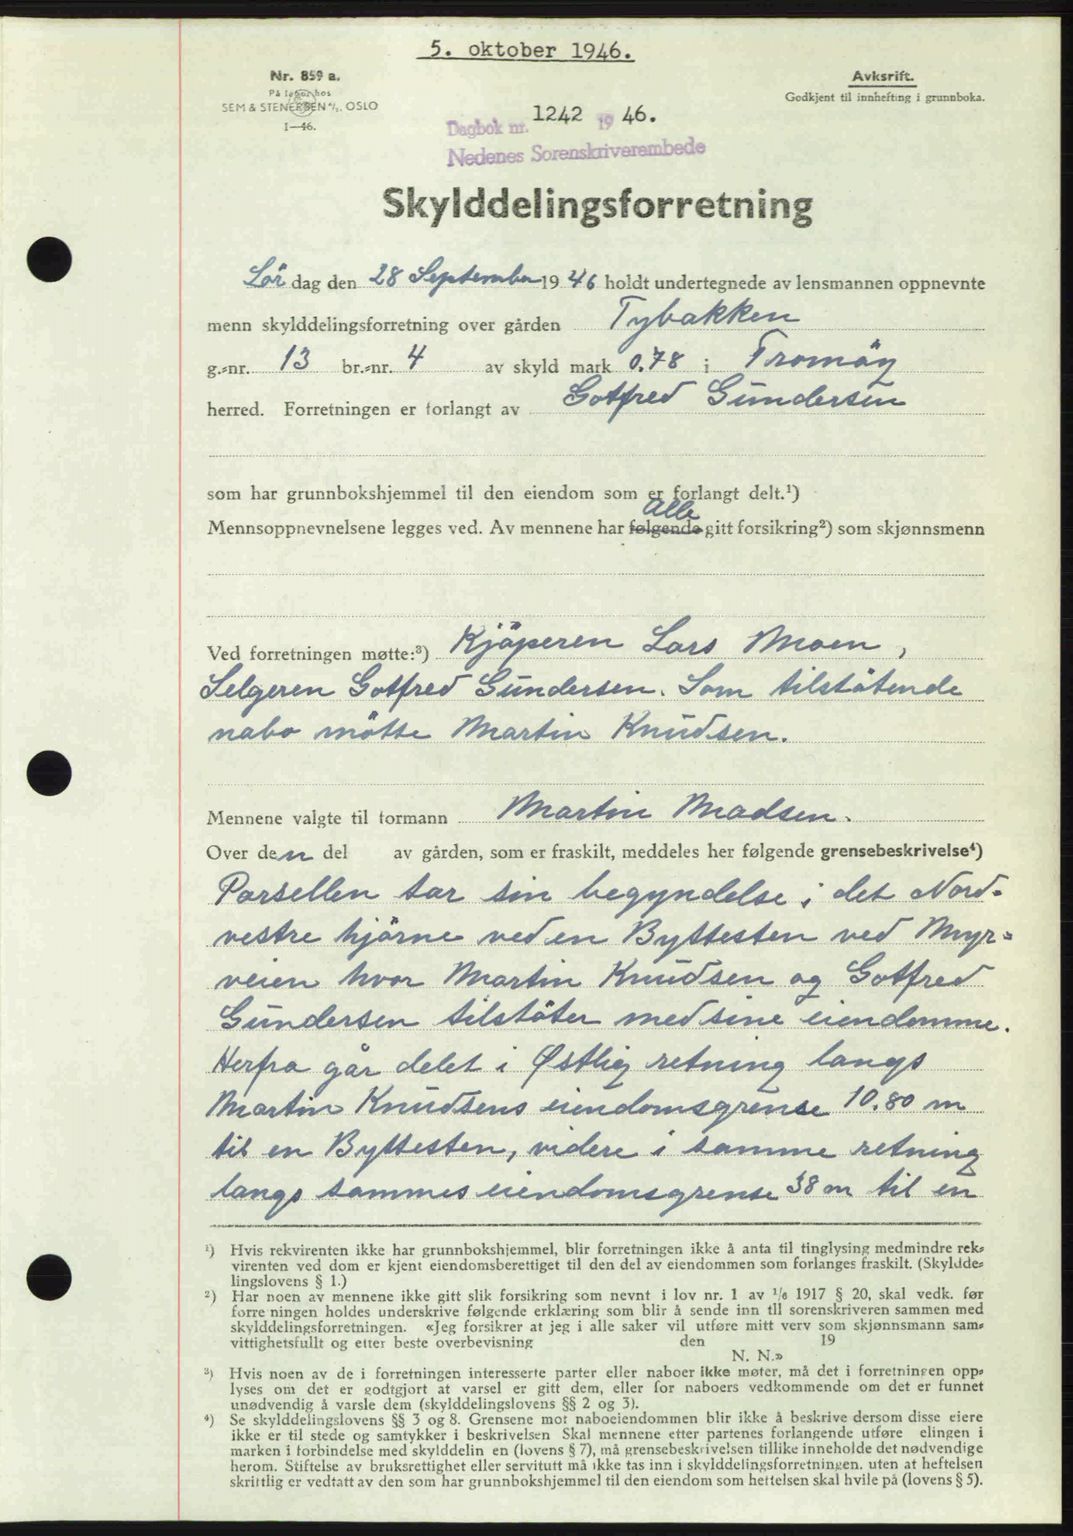 5. oktober 1946.
Nr. 859 a.
På lager hos
SEM & STENERSEN A/S. OSLO
1—46.
Avksrift.
Godkjent til innhefting i grunnboka.
Dagbok nr. 1242 19 46.
Nedenes Sorenskriverembede
Skylddelingsforretning
Lör dag den 28 September 19 46 holdt undertegnede av lensmannen oppnevnte
menn skylddelingsforretning over gården Tybakken
g.-nr. 13 br.-nr. 4 av skyld mark 0.78 i Tromöy
herred. Forretningen er forlangt av Gotfred Gundersen
som har grunnbokshjemmel til den eiendom som er forlangt delt.¹)
alle
Mennsoppnevnelsene legges ved. Av mennene har følgende gitt forsikring²) som skjønnsmenn
Ved forretningen møtte:³) Kjöperen Lars Moen,
Selgeren Gotfred Gundersen. Som tilstötende
nabo mötte Martin Knudsen.
Mennene valgte til formann Martin Madsen.
Over den del av gården, som er fraskilt, meddeles her følgende grensebeskrivelse⁴)
Parsellen tar sin begyndelse i det Nord-
vestre hjörne ved en Byttesten ved Myr-
veien hvor Martin Knudsen og Gotfred
Gundersen tilstöter med sine eiendomme.
Herfra går delet i Østlig retning langs
Martin Knudsens eiendomsgrense 10.80 m
til en Byttesten, videre i samme retning
langs sammes eiendomsgrense 38 m til en
¹) Hvis rekvirenten ikke har grunnbokshjemmel, blir forretningen ikke å anta til tinglysing medmindre rek-
virenten ved dom er kjent eiendomsberettiget til den del av eiendommen som forlanges fraskilt. (Skyldde-
lingslovens § 1.)
²) Har noen av mennene ikke gitt slik forsikring som nevnt i lov nr. 1 av 1/6 1917 § 20, skal vedk. før
forre ningen holdes underskrive følgende erklæring som blir å sende inn til sorenskriveren sammen med
skylddelingsforretningen. «Jeg forsikrer at jeg i alle saker vil utføre mitt verv som skjønnsmann sam-
vittighetsfullt og etter beste overbevisning den 19
N. N.»
³) Hvis noen av de i forretningen interesserte parter eller naboer ikke møter, må det i forretningen opp-
lyses om det er godtgjort at varsel er gitt dem, eller for naboers vedkommende om det er funnet
unødvendig å varsle dem (skylddelingslovens §§ 2 og 3).
⁴) Se skylddelingslovens §§ 3 og 8. Grensene mot naboeiendommen blir ikke å beskrive dersom disse eiere
ikke er til stede og samtykker i beskrivelsen Skal mennene etter partenes forlangende utføre elingen i
marken i forbindelse med skylddelin en (lovens § 7), må grensebeskrivelsen tillike inneholde det nødvendige
herom. Stiftelse av bruksrettighet eller servitutt må ikke tas inn i skylddelingsforretningen. uten at heftelsen
skriftlig er vedtatt av den som har grunnbokshjemmel til den eiendom som heftelsen skal hvile på (lovens § 5).